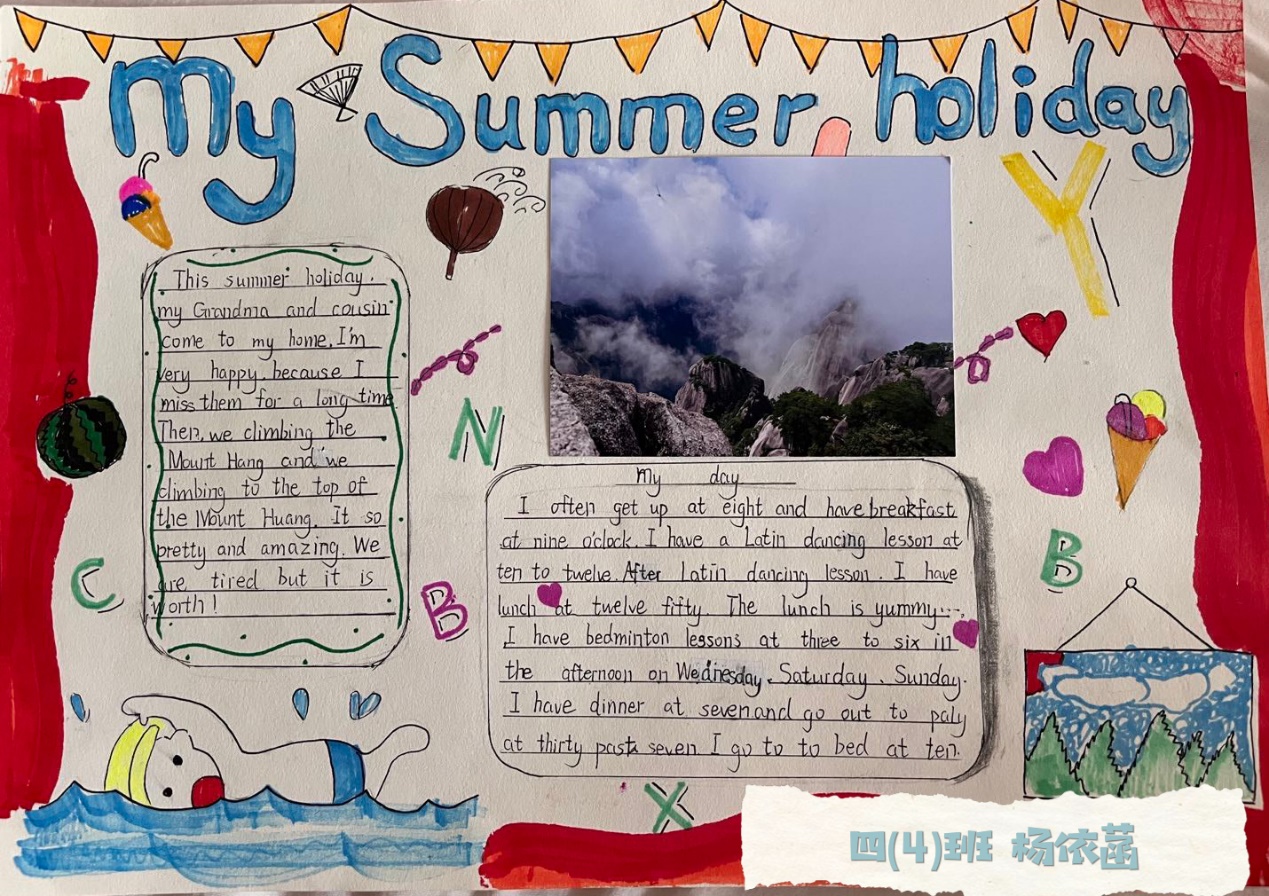 My Summer holiday
This summer holiday.
my Grandma and cousin
come to my home. I'm
very happy. because I
miss them for a long time
Then, we climbing the
Mount Hang and we
climbing to the top of
the Mount Huang. It so
pretty and amazing. We
are tired but it is
worth!
My day
I often get up at eight and have breakfast
at nine o'clock. I have a Latin dancing lesson at
ten to twelve. After Latin dancing lesson. I have
lunch at twelve fifty. The lunch is yummy...
I have bedminton lessons at three to six in
the afternoon on Wednesday、Saturday、Sunday.
I have dinner at seven and go out to paly
at thirty past seven I go to to bed at ten.
Y
N
C
B
B
X
四(4)班 杨依菡